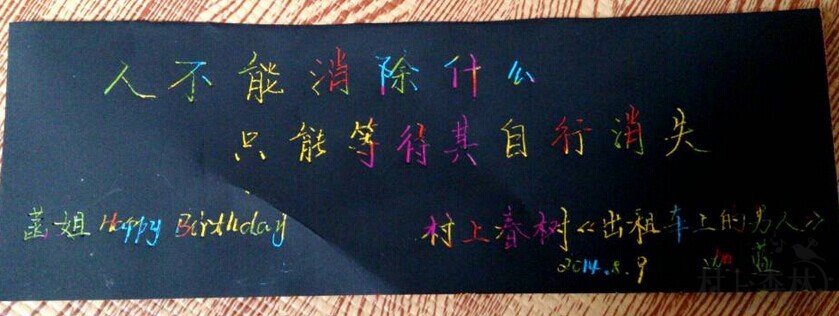 人不能消除什么
只能等得其自行消失
菡姐 Happy Birthday
村上春树《出租车上的男人》
2014.8.9 蓝
村上森林